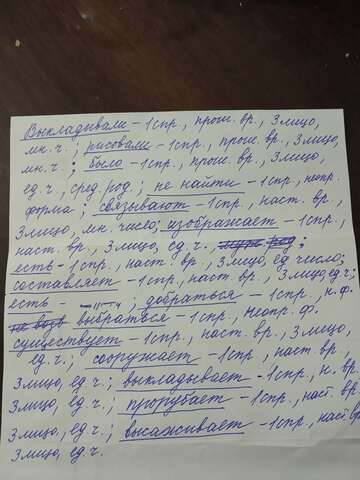 Выкладывали - 1 спр., прош. вр., 3 лицо,
мн. ч.; рисовали - 1 спр., прош. вр., 3 лицо,
мн. ч.; было - 1 спр., прош. вр., 3 лицо,
ед. ч., сред. род.; не найти - 1 спр., неопр.
форма; связывают - 1 спр., наст. вр.,
3 лицо, мн. число; изображает - 1 спр.,
наст. вр., 3 лицо, ед. ч.;
есть - 1 спр., наст. вр., 3 лицо, ед. число;
составляет - 1 спр., наст. вр., 3 лицо, ед. ч.;
есть - -"-; добраться - 1 спр., н. ф.
выбраться - 1 спр., неопр. ф.
существует - 1 спр., наст. вр., 3 лицо,
ед. ч.; сооружает - 1 спр., наст. вр.,
3 лицо, ед. ч.; выкладывает - 1 спр., н. вр.
3 лицо, ед. ч.; прорубает - 1 спр., наст. вр.,
3 лицо, ед. ч.; высаживает - 1 спр., наст. вр.
3 лицо, ед. ч.